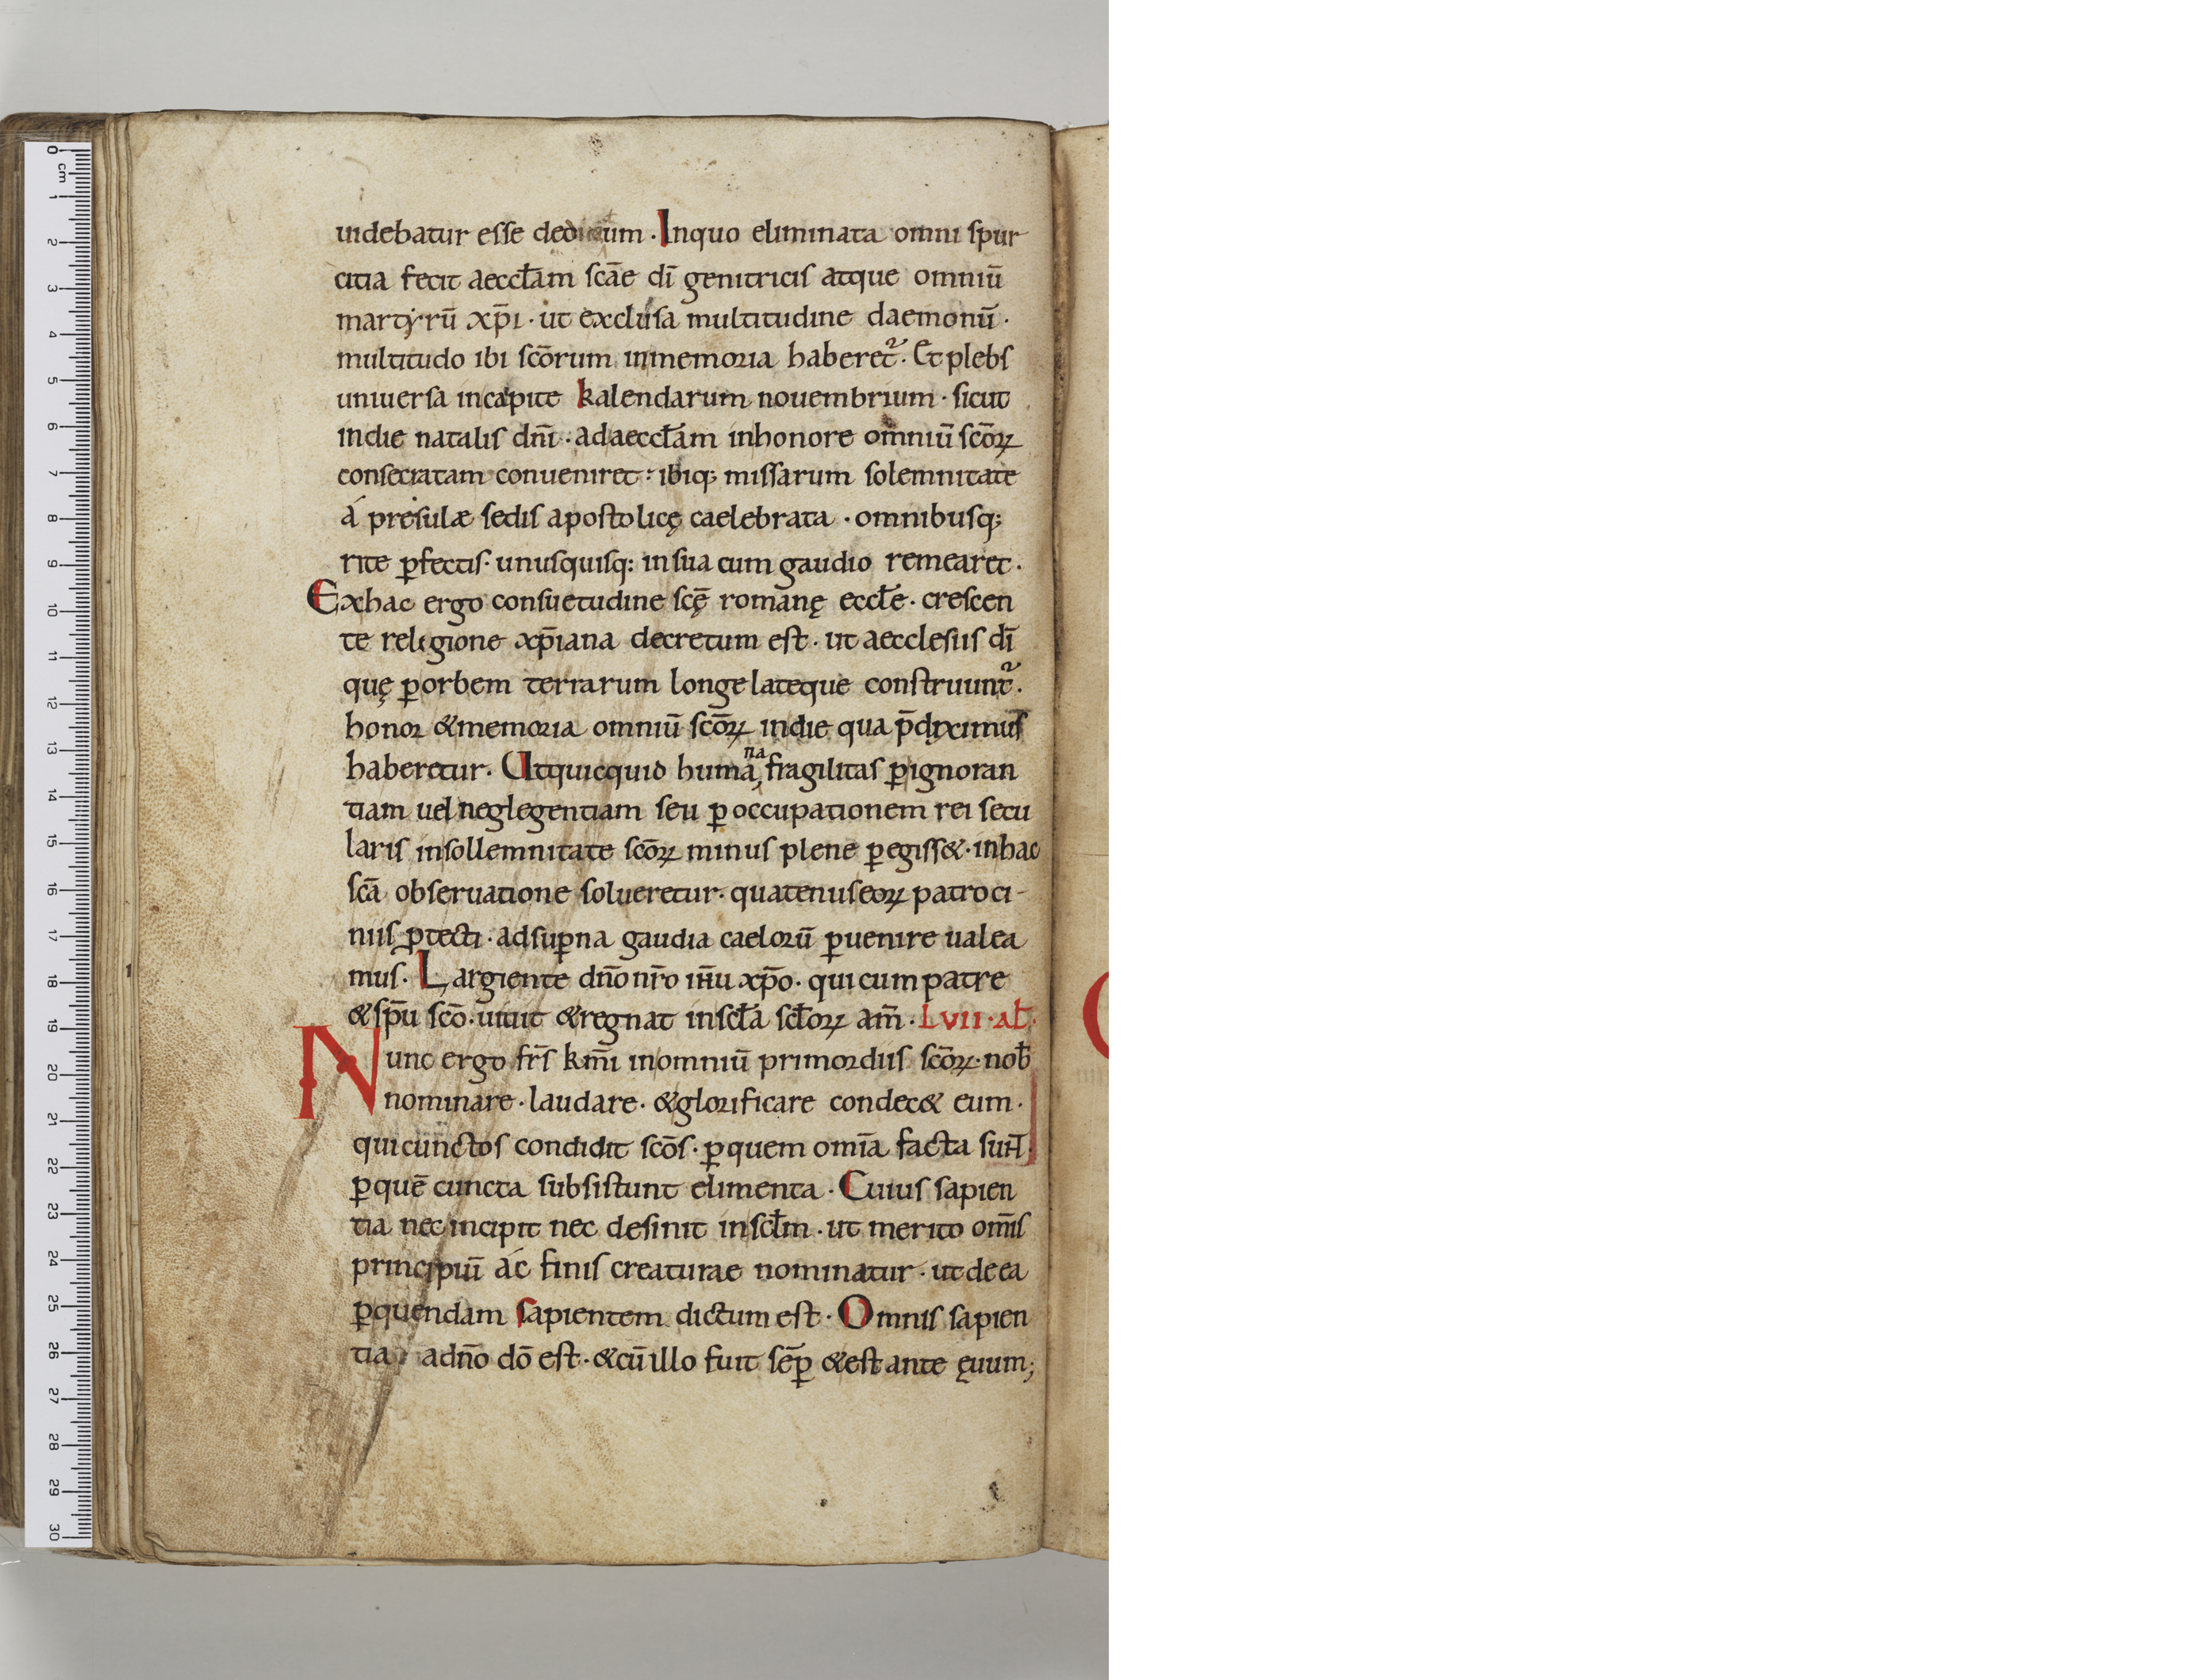 uidebatur esse dedicatum · Inquo eliminata omni spur
citia fecit aeccłam scāe dī genitricis atque omniū
martyrū xp̄i · ut exclusa multitudine daemonū ·
multitudo ibi scōrum inmemoria haberet᷑ · Et plebs
uniuersa incapite kalendarum nouembrium · sicut
indie natalis dnī · adaeccłam inhonore omniū scōꝝ
consecratam conueniret · ibiq; missarum solemnitate
á presulæ sedis apostolicę caelebrata · omnibusq;
rite ꝑfectis · unusquisq: insua cum gaudio remearet ·
Exhac ergo consuetudine scę̄ romanę eccłe · crescen
te religione xp̄iana decretum est · ut aecclesiis dī
quę ꝑorbem terrarum longe lateque construunt᷑ ·
honor &memoria omniū scōꝝ indie qua p̄diximus
haberetur · Utquicquid humana fragilitas ꝑignoran
tiam uel neglegentiam seu ꝑ occupationem rei secu
laris insollemnitate scōꝝ minus plene ꝑegiss& · inhac
scā obseruatione solueretur · quatenus eoꝝ patroci-
niis ꝓtecti · adsuꝑna gaudia caelorū ꝑuenire ualea
mus · Largiente dn̄o nr̄o ih̄u xp̄o · qui cum patre
&sp̄u scō · uiuit &regnat inscła scłoꝝ am̄ · LVII · ab̄ ·
Nunc ergo fr̄s km̄i inomniū primordiis scōꝝ · nob̄
nominare · laudare · &glorificare condec& eum ·
qui cunctos condidit scōs · ꝑquem omīa facta sun̄t ·
ꝑquē cuncta subsistunt elimenta · Cuius sapien
tia nec incipit nec desinit inscłm · ut merito om̄is
principiū ác finis creaturae nominatur · ut de ea
ꝑquendam sapientem dictum est · Omnis sapien
tia adn̄o dō est · &cū illo fuit sēꝑ &est ante ęuum;